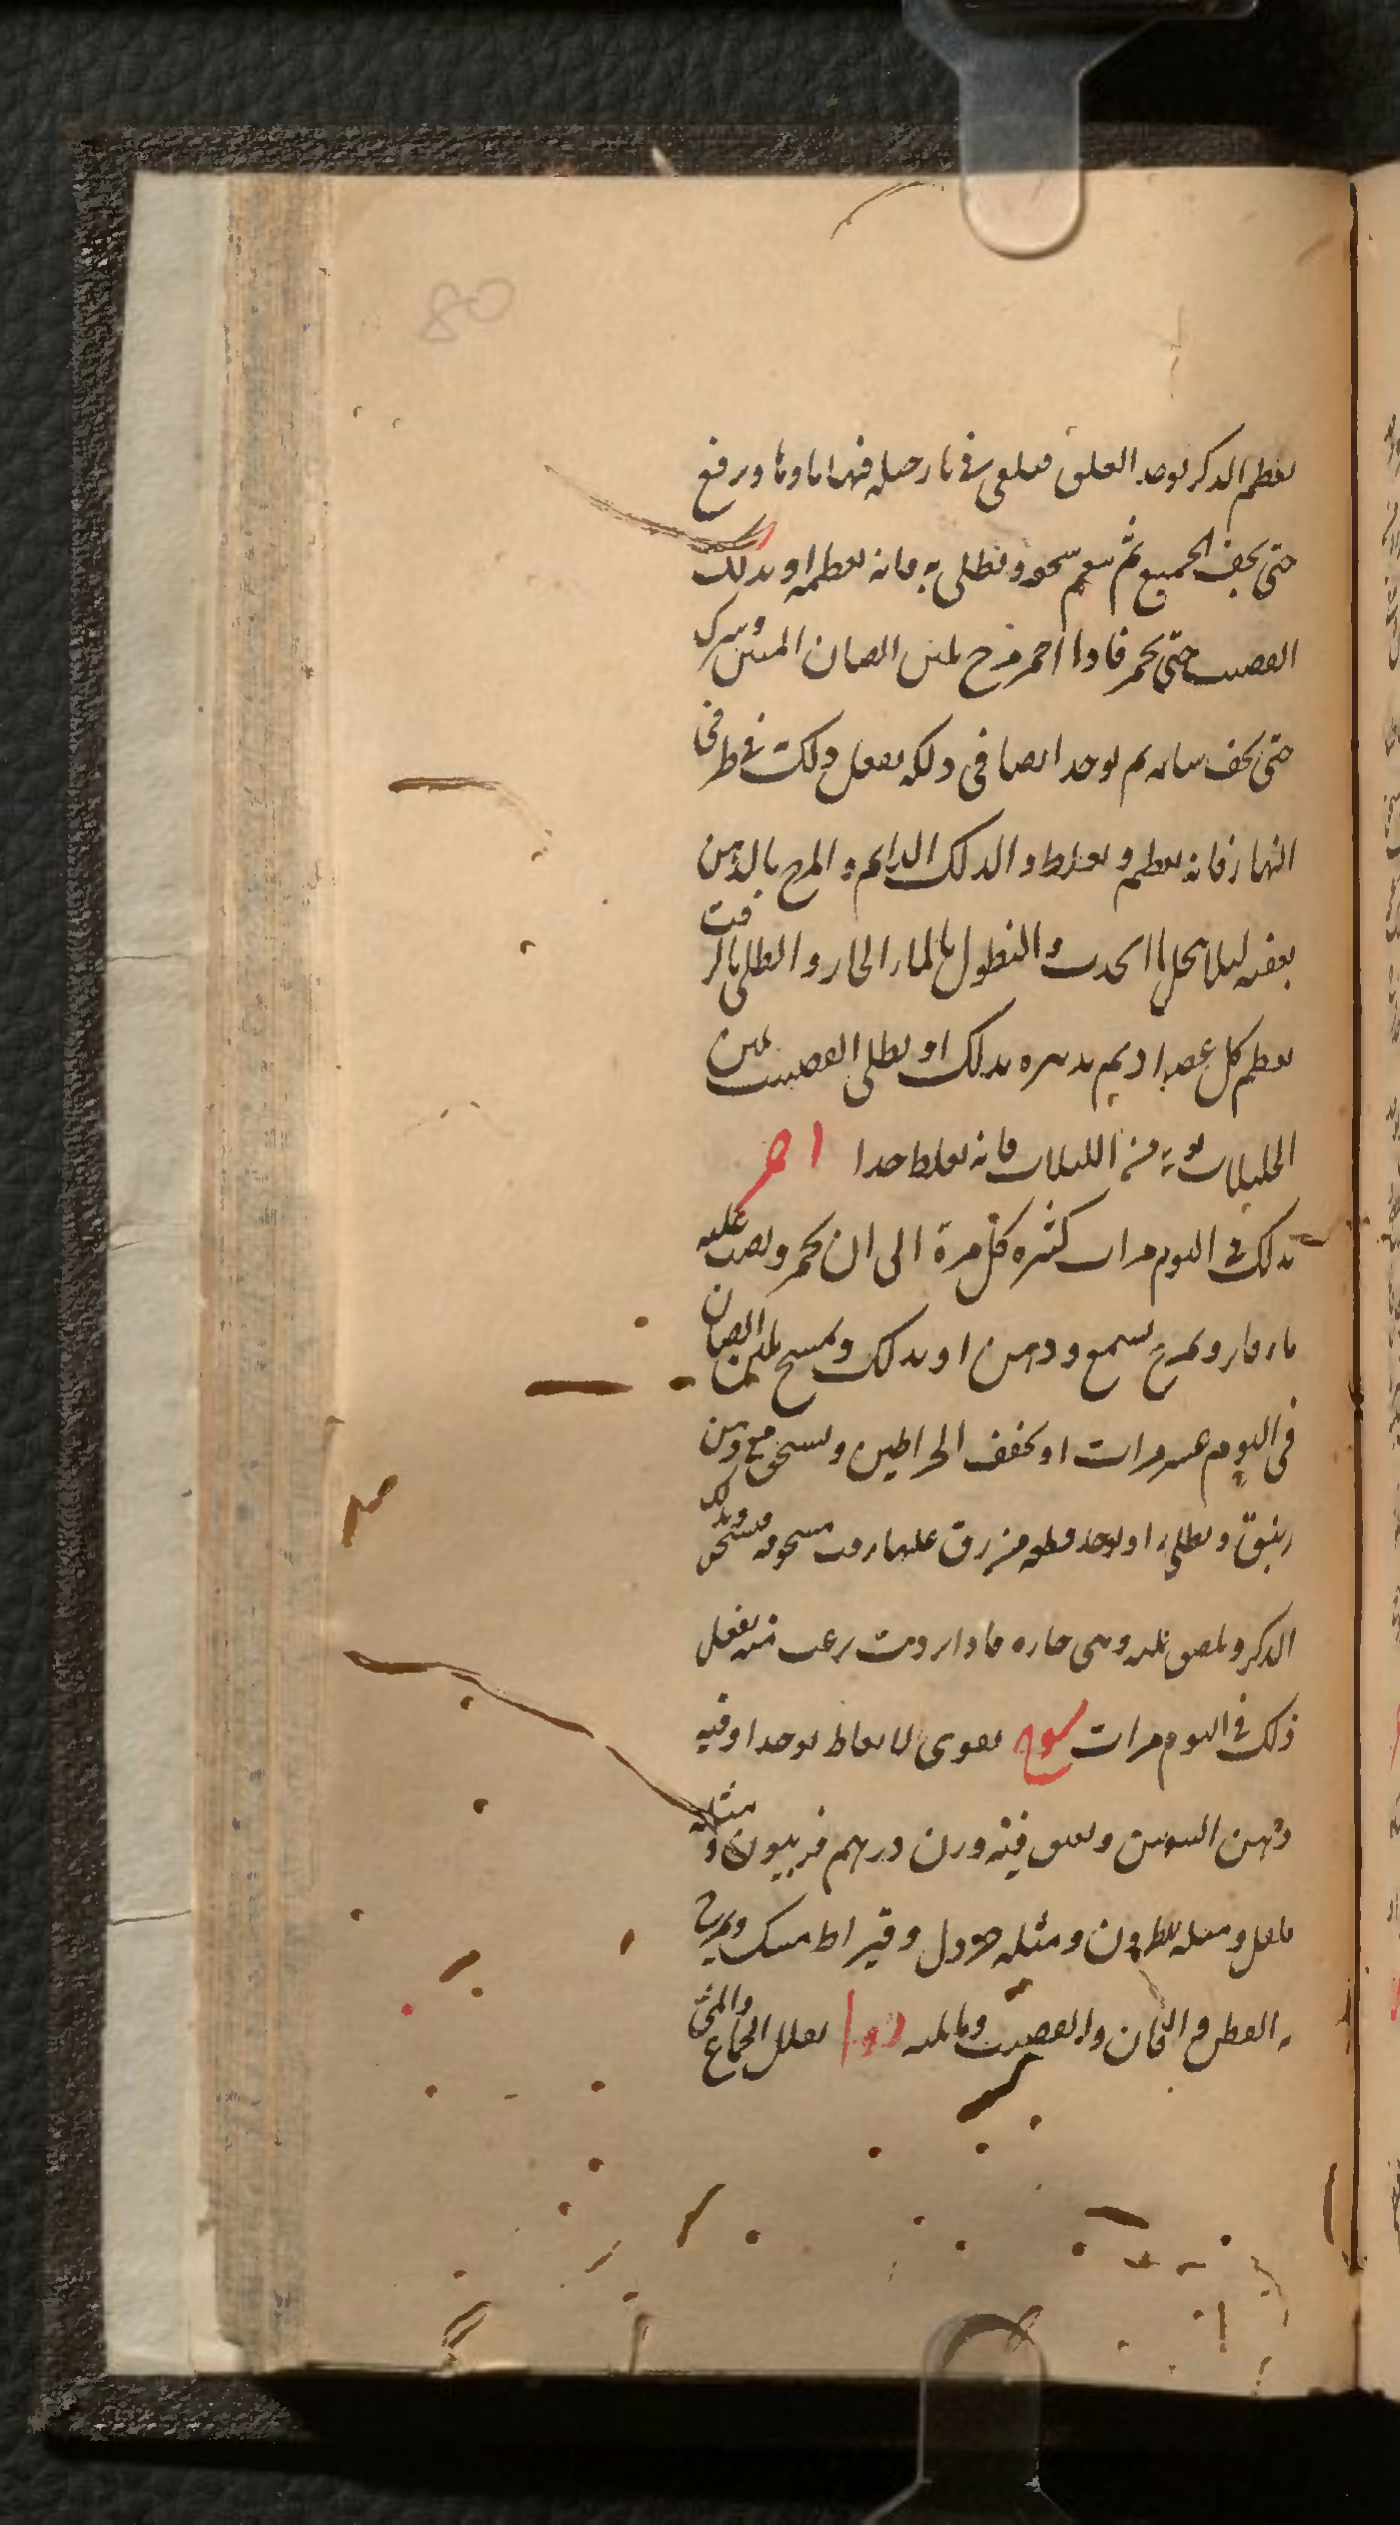 80
يعظم الذكر يوخذ العلق فيلقى في نارجيله فيها ماوها ويرفع
حتى يجف الجميع ثم ينعم سحقه ويطلى به فانه يعظمه او يدلك
القضيب حتى يحمر فاذا احمر مرخ بلبن الضان المسخن ويترك
حتى يجف ساعه ثم يوخذ ايضا في دلكه يفعل ذلك في طرفي
النهار فانه يعظم ويغلظ والدلك الدايم والمرخ بالدهن
بعقبه ليلا يحل ما انجذب والنطول بالماء الحار والطلى بالزفت
يعظم كل عضو اديم تدبيره بذلك او يطلى القضيب بلبن
فانه يغلظ جدا اخر
يدلك في اليوم مرات كثيره كل مرة الى ان يحمر ويصب عليه
ماء حار ويمرخ بشمع ودهن او يدلك ويمسح بلبن الضان
في اليوم عشر مرات او يجفف الخراطين ويسحق مع دهن
زنبق ويطلى به او يوخذ قطعه من زق عليها زفت مسحوقه فتسخن ويدلك
الذكر ويلصق عليه وهي حاره فاذا بردت نزعت عنه يفعل
ذلك في اليوم مرات مسوح يقوي الانعاظ يوخذ اوقيه
دهن السوسن ويفتق فيه وزن درهم فربيون ومثله
فلفل ومثله نطرون ومثله خردل وقيراط مسك ويمرخ
به القطن والعانه والقضيب وما يليه دوا يقلل الجماع والمني